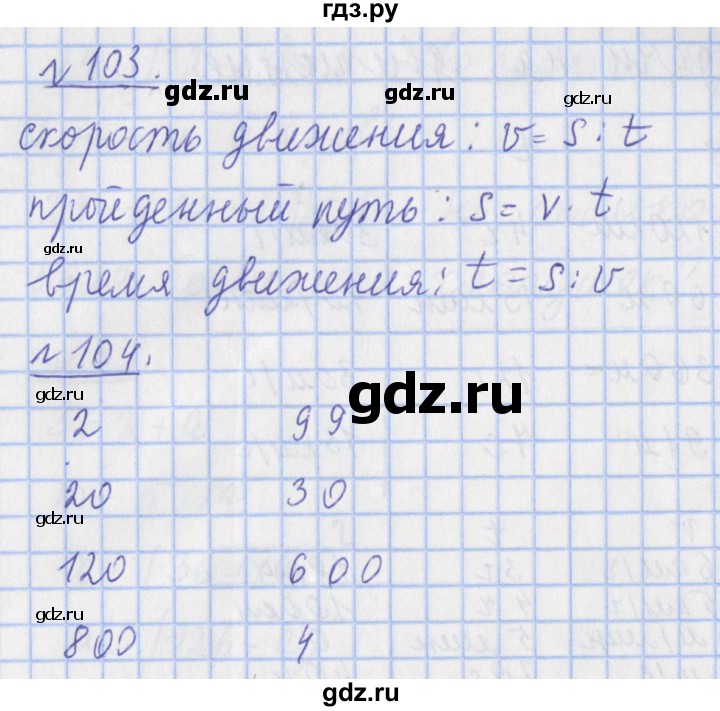 гдз.ру
№ 103.
gdz.ru
gdz.ru
скорость движения: v = s : t
пройденный путь: s = v · t
gdz.ru
время движения: t = s : v
№ 104.
gdz.ru
gdz.ru
2 99
20 30
gdz.ru
120 600
gdz.ru
800 4
gdz.ru